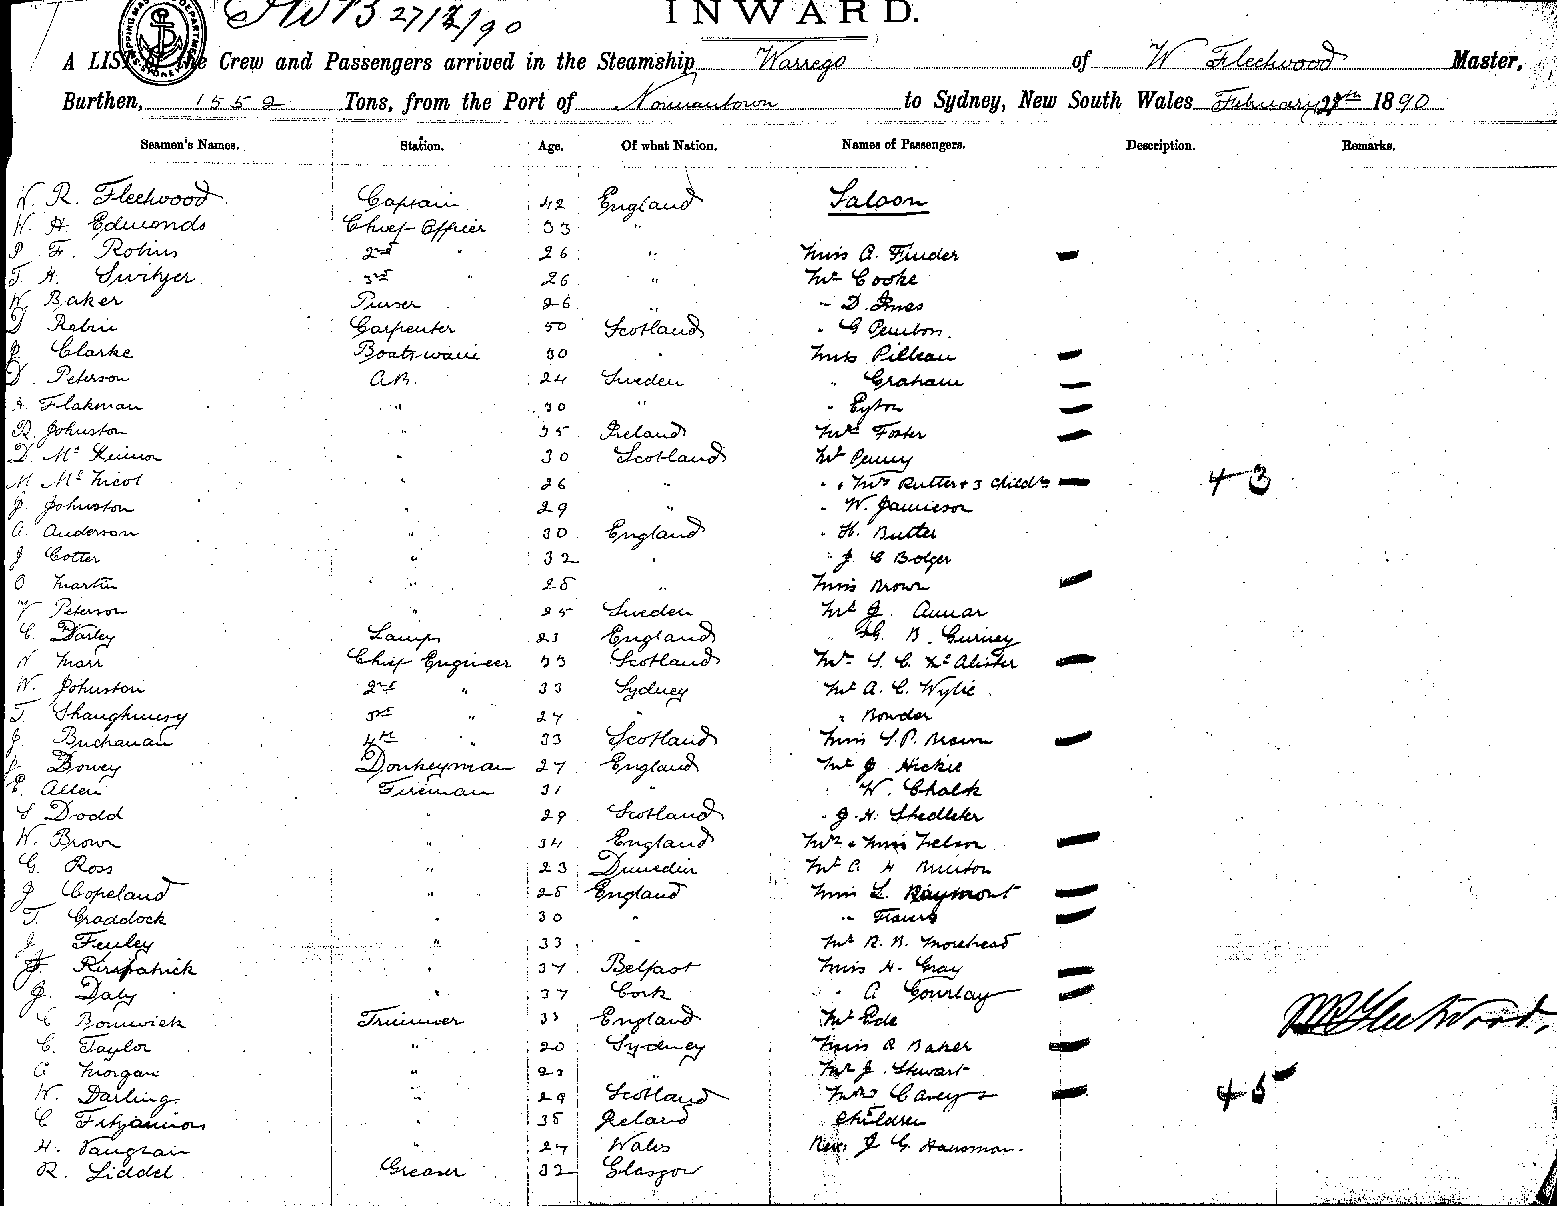 27/2/90
INWARD.
A LIST of the Crew and Passengers arrived in the Steamship Warrego of W Fleetwood Master,
Burthen, 1552 Tons, from the Port of to Sydney, New South Wales February 28th 1890
Seamen's Names. Station. Age. Of what Nation. Names of Passengers. Description. Remarks.
W. R. Fleetwood Captain 42 England Saloon
W. H. Edmonds Chief Officer 33 "
F. Robins 2nd " 26 " Miss A. Finder
T. H. Switzer 3rd " 26 " Mr Cooke
W. Baker Purser 26 " " D. Innes
D Rabin Carpenter 50 Scotland " G
J Clarke Boatswain 30 " Miss Pilleau
D. Peterson A.B. 24 Sweden " Graham
A Flakman " 30 " " Eyton
R. Johnston " 35 Ireland Mrs Foster
D. Mc Kinnon " 30 Scotland Mr Penny
M Mc Nicol " 26 " " " Mrs Rutter + 3 childn + 3
J. Johnston " 29 " " W. Jamieson
A. Anderson " 30 England " H. Butter
J Cotter " 32 " " J C Bolger
O Martin " 25 " Miss Brown
Peterson " 25 Sweden Mr J.
C. Darley Lamps 23 England " B. Gurney
W Marr Chief Engineer 33 Scotland Mrs S. C. McAlister
W. Johnston 2nd " 33 Sydney Mr A. C. Wylie
T. Shaughnessy 3rd " 27 " " Bowder
J. Buchanan 4th " 33 Scotland Miss S. P. Brown
Dowey Donkeyman 27 England Mr J Hickie
E. Allen Fireman 31 " " W. Chalk
S Dodd " 29 Scotland " J. H.
W. Brown " 34 England Mrs + Miss Nelson
G. Ross " 23 Dunedin Mr A H Burton
J Copeland " 25 England Miss L. Raymont
T. Craddock " 30 " "
J. Fenley " 33 " Mr R. B. Morehead
Kirkpatrick " 37 Belfast Miss H. Gray
J. Daly " 37 Cork " A Gourlay
C Bonwick Trimmer 33 England Mr Ede W R Fleetwood
C. Taylor " 20 Sydney Miss A Baker
A Morgan " 23 " Mr J. Stewart
W. Darling " 29 Scotland Mrs Carey + 5
C Fitzsimmons " 35 Ireland children
H. Vaughan " 27 Wales Rev. J G
R. Liddel Greaser 32 Glasgow